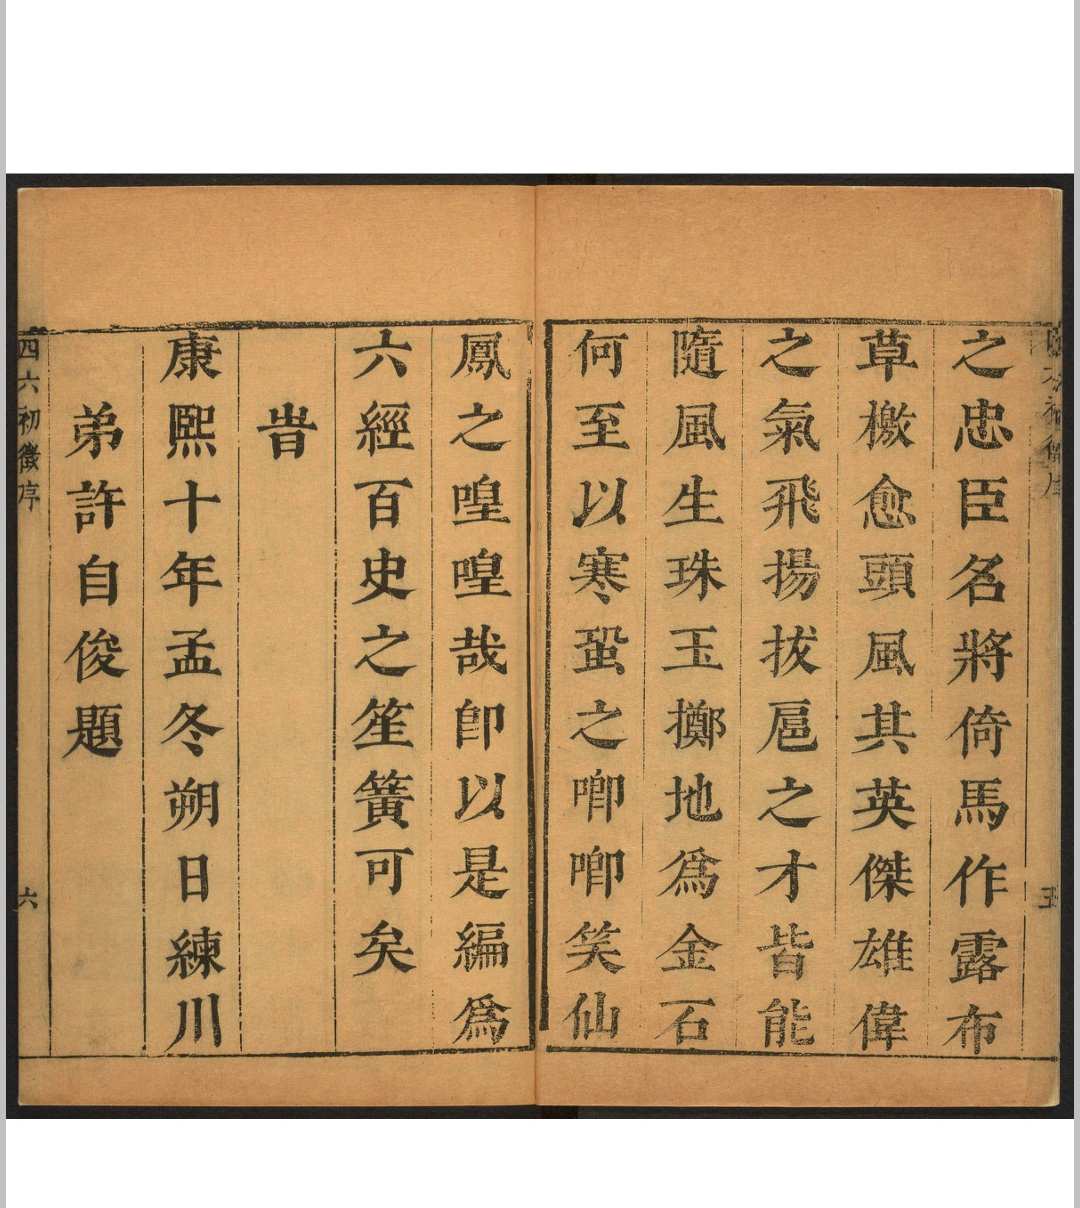 之忠臣名將倚馬作露布
草檄愈頭風其英傑雄偉
之氣飛揚拔扈之才皆能
隨風生珠玉擲地爲金石
何至以寒蛩之喞喞笑仙
鳳之喤喤哉卽以是編爲
六經百史之笙簧可矣
旹
康熙十年孟冬朔日練川
弟許自俊題
四六初徵序
六